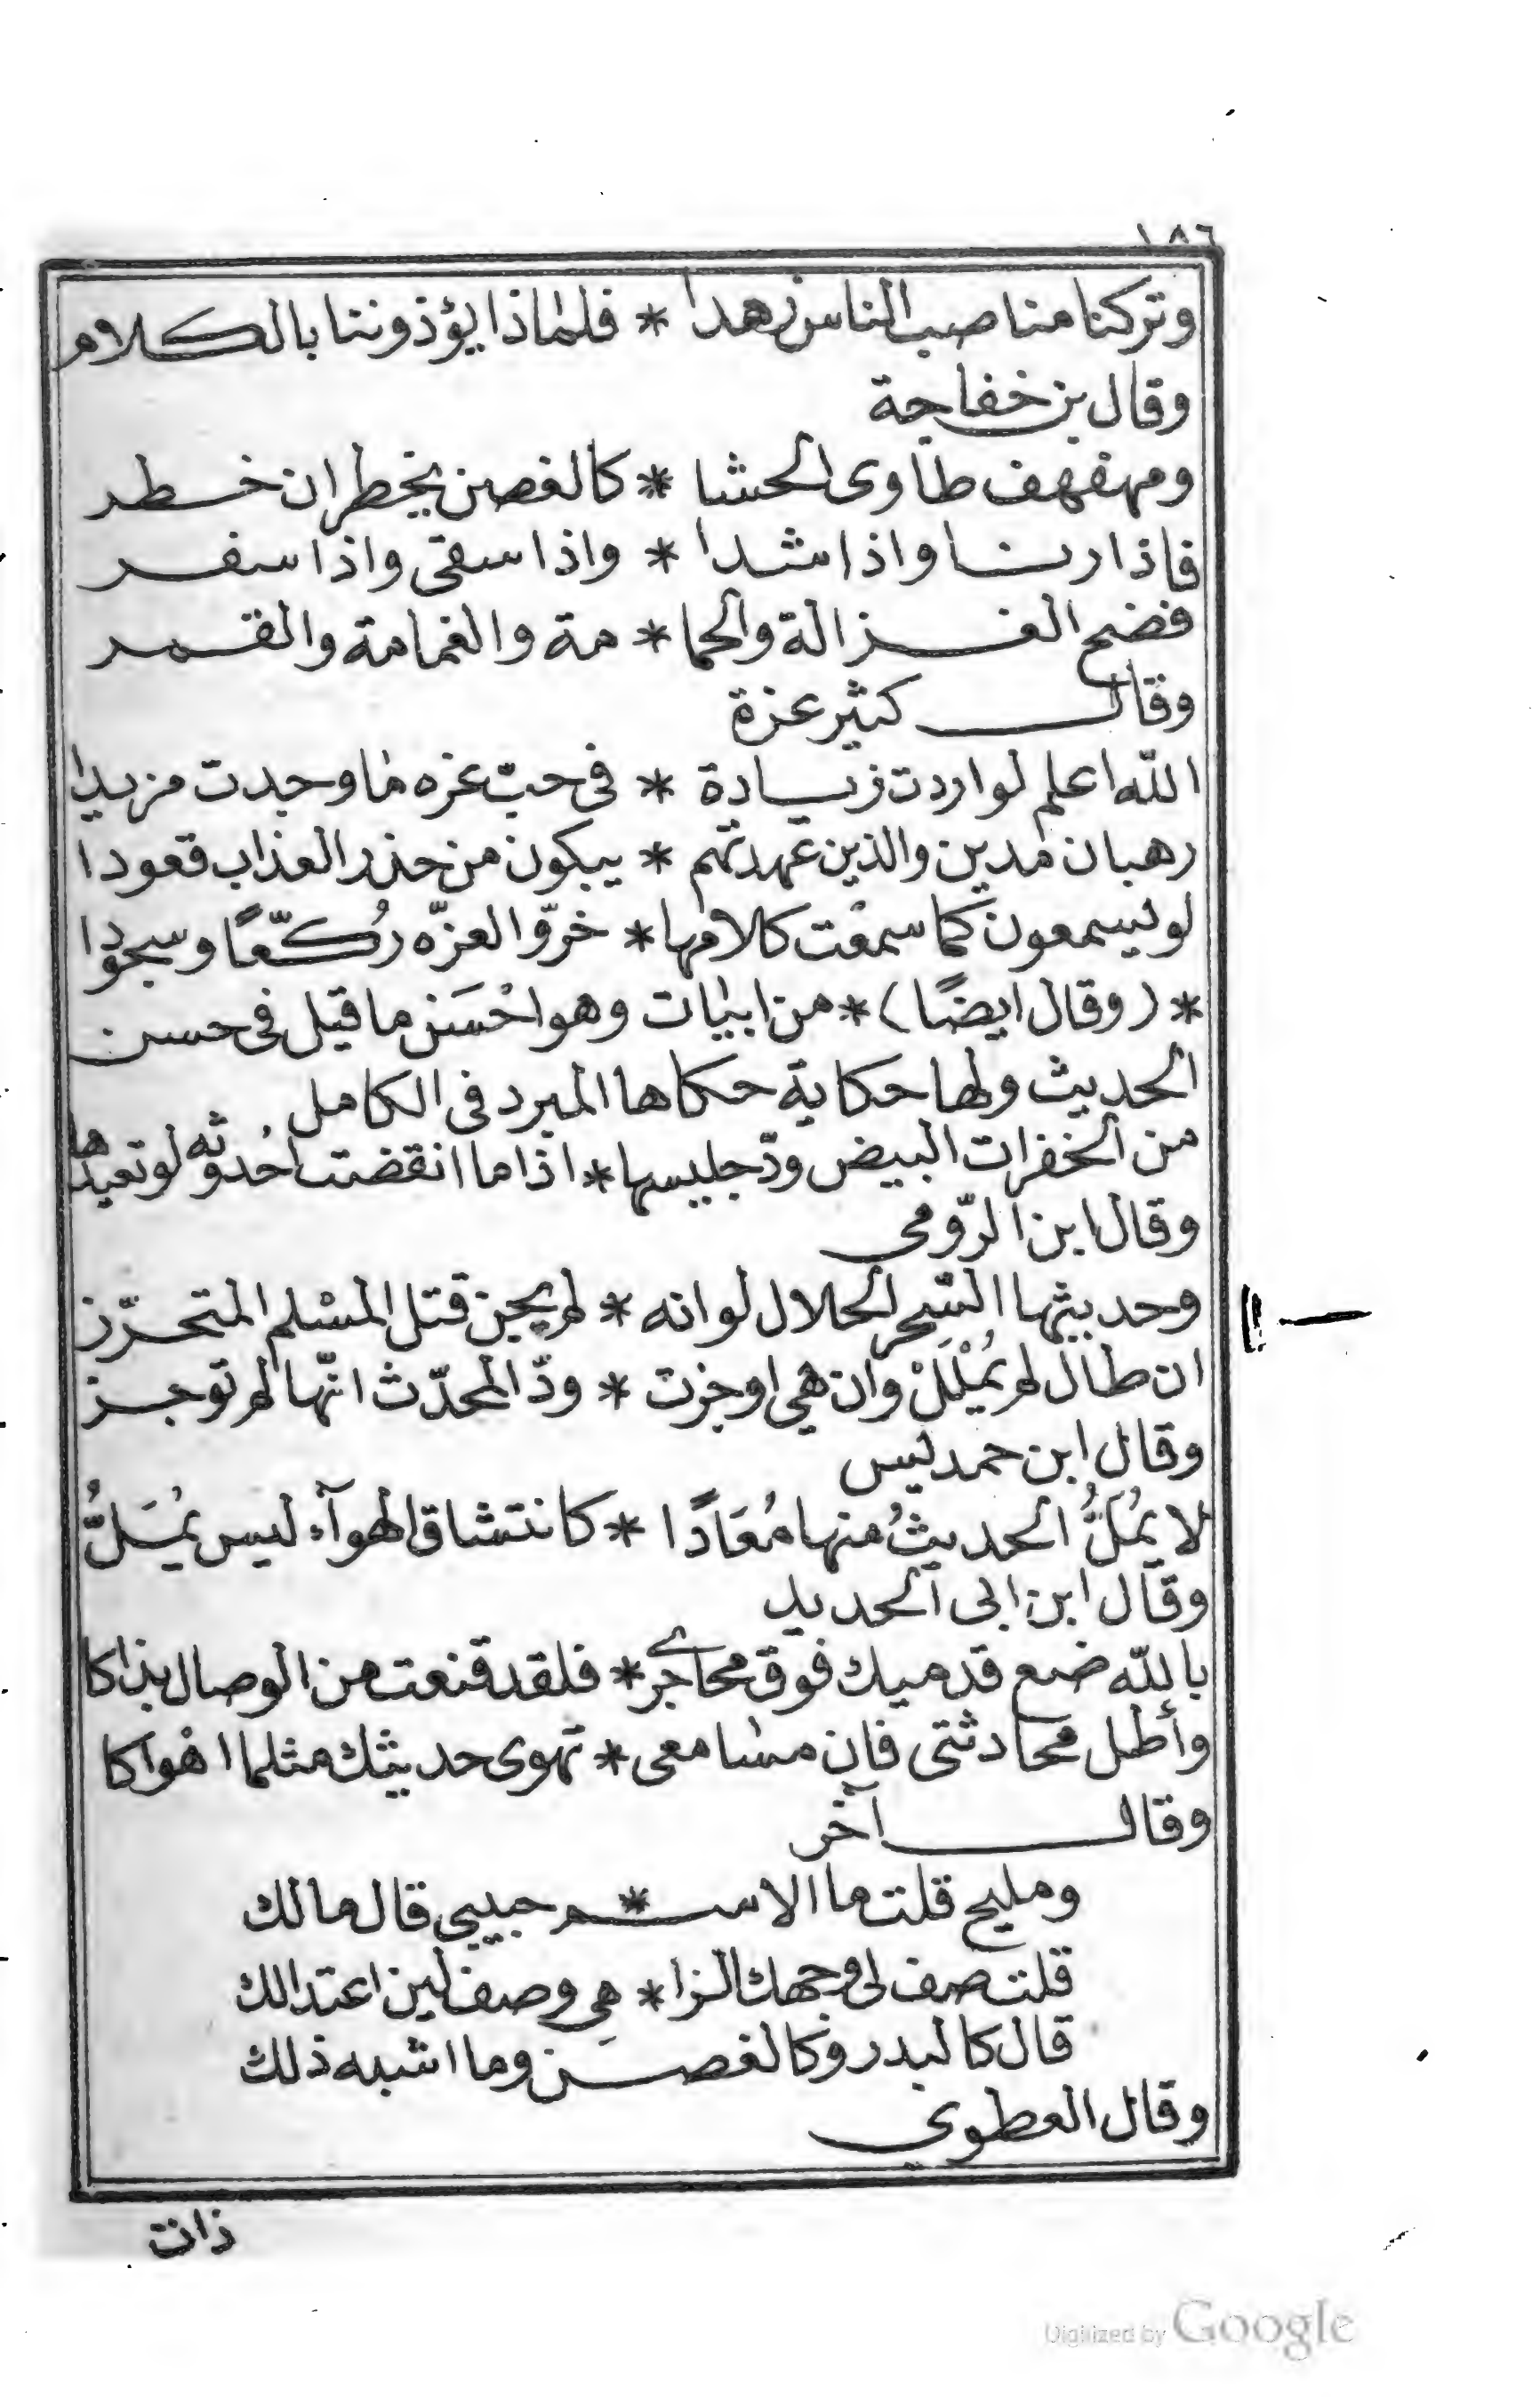 ١٨٦
وتركنا مناصب الناس زهدا * فلماذا يؤذوننا بالكلام
وقال بن خفاجة
ومهفهف طاوى الحشا * كالغصن يخطر ان خطر
فاذا رنا واذا شدا * واذا سقى واذا سفر
فضح الغزالة والحما * مة والغمامة والقمر
وقال كثير عزة
الله اعلم لو اردت زيادة * فى حب عزه ما وجدت مزيدا
رهبان مدين والذين عهدتهم * يبكون من حذر العذاب قعودا
لو يسمعون كما سمعت كلامها * خرّوا لعزّه رُكّعًا وسجودا
* (وقال ايضًا) * من ابيات وهو احْسَن ما قيل فى حسن
الحديث ولها حكاية حكاها المبرد فى الكامل
من الخفرات البيض ودّ جليسها * اذا ما انقضت احُدوثه لو تعيدها
وقال ابن الرّومى
وحديثها السّحر الحلال لو انه * لم يجن قتل المسْلم المتحرّز
ان طال لم يُمْلَلْ وان هي اوجزت * ودّ المحدّث انّها لم توجز
وقال ابن حمديس
لا يُمَلُّ الحديثُ منها مُعَادًا * كانتشاق الهوآء ليس يُمَلُّ
وقال ابن ابى الحديد
بالله ضع قدميك فوق محاجرى * فلقد قنعت من الوصال بذاكا
وأطل محادثتى فان مسامعى * تهوى حديثك مثلما اهْواكا
وقال آخر
ومليح قلت ما الاسـ * ـم حبيبى قال مالك
قلت صف لى وجهك الزا * هِى وصف لين اعتدالك
قال كالبدر وكالغصـ ـن وما اشبه ذلك
وقال العطوي
ذات
Digitized by Google